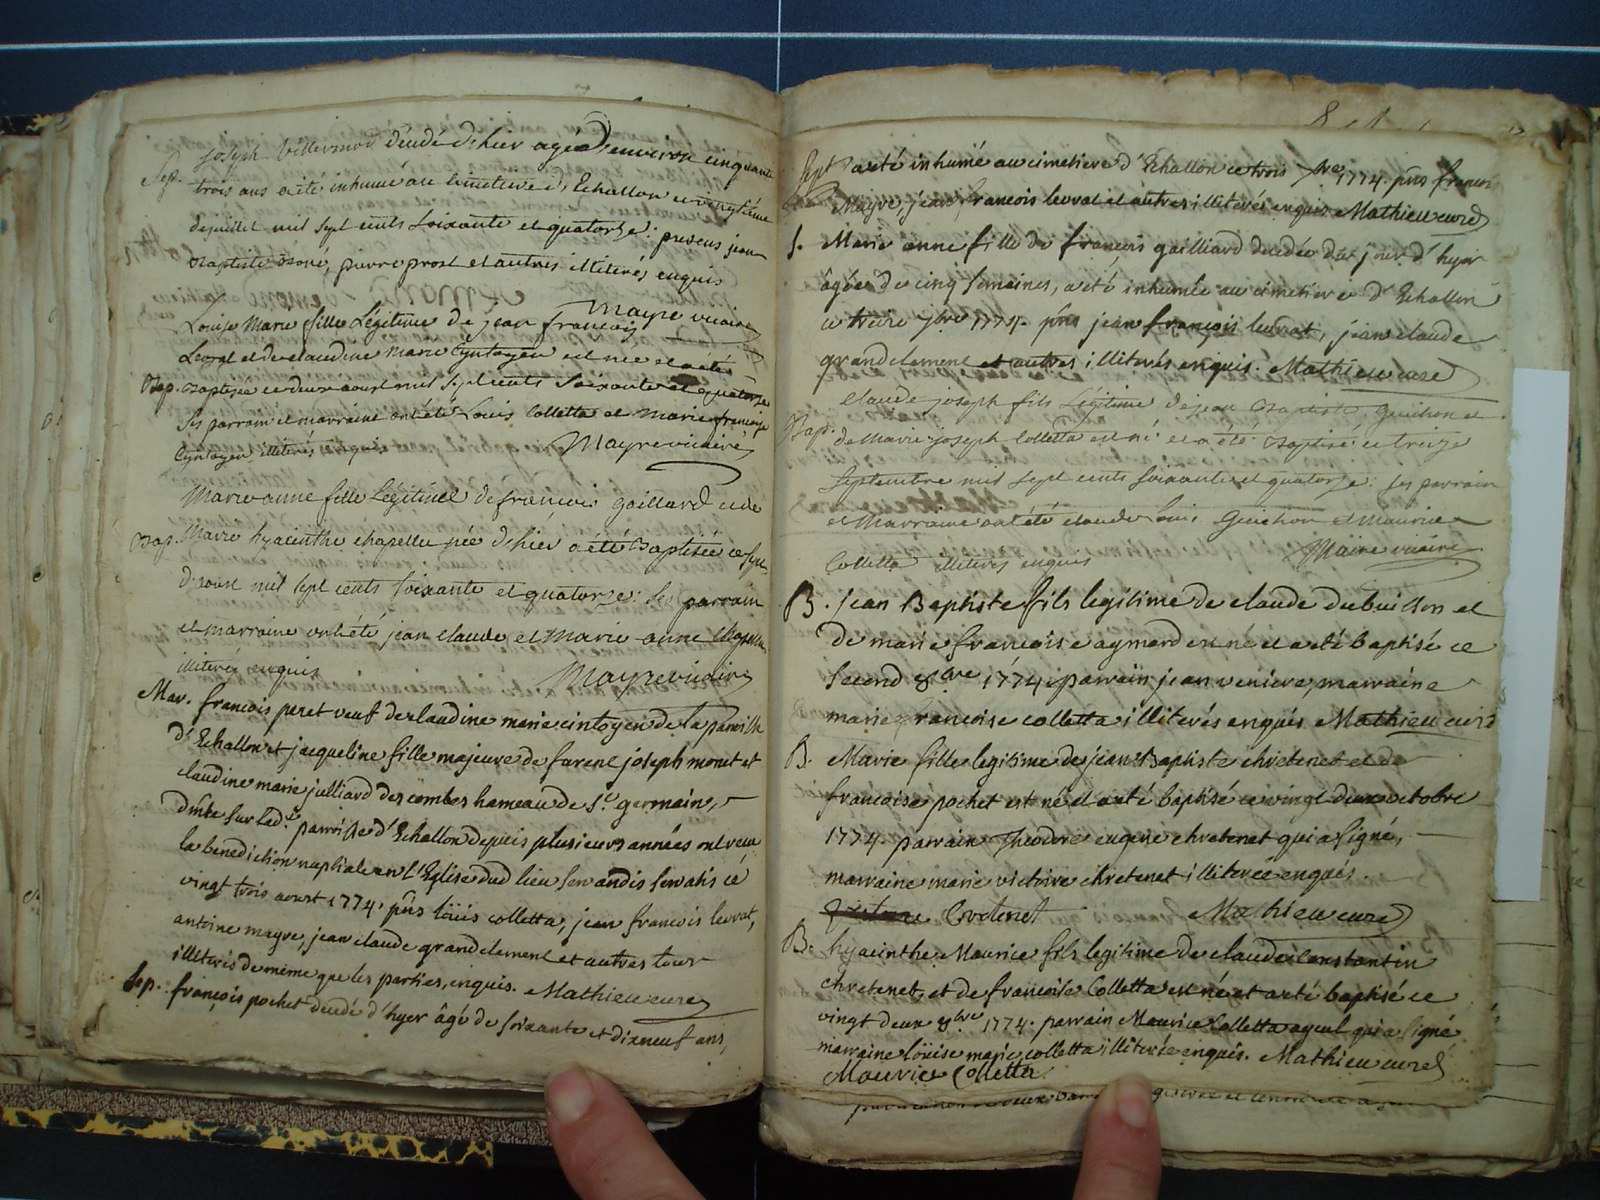 joseph Villermod décédé d'hier agé d'environ cinquante
Sep. trois ans a été inhumé au cimetiere d'Echallon ce vingtieme
de juillet mil sept cents soixante et quatorze: presens jean
Baptiste pierre prost et autres illiterés enquis
Mayre vicaire
Louise Marie fille Légitime de jean francois
Levrat et de claudine Marie Cyntoyen est née et a été
Bap. Baptisée ce deux aoust mil sept cents soixante et quatorze
ses parrain et marraine ont été Louis Colletta et Marie françoise
Cyntoyen illiterés enquis Mayre vicaire
Marie anne fille Légitime de francois gaillard et de
Bap. Marie hyacinthe chapelle née d'hier a été Baptisée ce
d'aoust mil sept cents soixante et quatorze: ses parrain
et marraine ont été jean claude et Marie anne
illiterés enquis Mayre vicaire
Mar. francois peret veuf de claudine marie cintoyen de la parroisse
d'Echallon et jacqueline fille majeure de furent joseph monet et
claudine marie julliard des combes hameau de St. germain,
dmte sur lad.e parroisse d'Echallon depuis plusieurs années ont receu
la benediction nuptiale en l'Eglise dud lieu servandis servatis ce
vingt trois aoust 1774. pñs loüis colletta, jean francois levrat,
antoine mayre, jean claude grandclement et autres tous
illiterés de meme que les parties, enquis. Mathieu curé
Sep. françois pochet décédé d'hyer âgé de soixante et dixneuf ans,
Sept a été inhumé au cimetiere d'Echallon ce trois 7bre 1774. pñs francois
Mayre, jean francois levrat et autres illiterés enquis Mathieu curé
S. Marie anne fille de françois gailliard décédée du jour d'hyer
âgée de cinq semaines, a été inhumée au cimetiere d'Echallon
ce treize 7bre 1774. pñs jean françois levrat, jean claude
grandclement et autres illiterés enquis. Mathieu curé
claude joseph fils Légitime de jean Baptiste Guichon et
Bap. de Marie joseph Colletta est né et a été Baptisé ce treize
septembre mil sept cents soixante et quatorze: ses parrain
et Marraine ont été claude Guichon et Maurice
Colletta illiterés enquis Maire vicaire
B. Jean Baptiste fils legitime de claude dubuisson et
de marie francoise aymard est né et a eté baptisé ce
second 8bre 1774. parrain jean veniere, marraine
marie francoise colletta illiterés enquis Mathieu curé
B. Marie fille legitime de jean Baptiste chretenet et de
francoise pochet est né et a eté baptisé ce vingt deux octobre
1774. parrain Theodore eugene chretenet qui a signé,
marraine marie victoire chretenet illiterée enquis.
Cretenet Mathieu curé
B. hyacinthe Maurice fils legitime de claude Constantin
chretenet, et de francoise Colletta est né et a eté baptisé ce
vingt deux 8bre 1774. parrain Maurice Colletta ayeul qui a signé
marraine loüise marie colletta illiterée enquis. Mathieu curé
Maurice Colletta